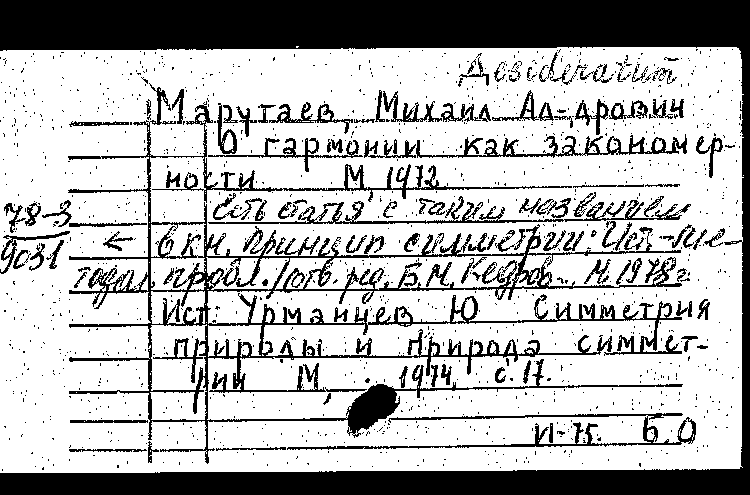 Desideratum
Марутаев, Михаил Ал-дрович
О гармонии как закономер-
ности М, 1972
Есть статья с таким названием
78-3
9031 ← в кн. Принцип симметрии: Ист.-ме-
тодол. пробл. / отв. ред. Б.М. Кедров., М. 1978г.
Ист: Урманцев Ю Симметрия
природы и природа симмет-
рии М, 1974, с. 17.
VI-75. Б.О